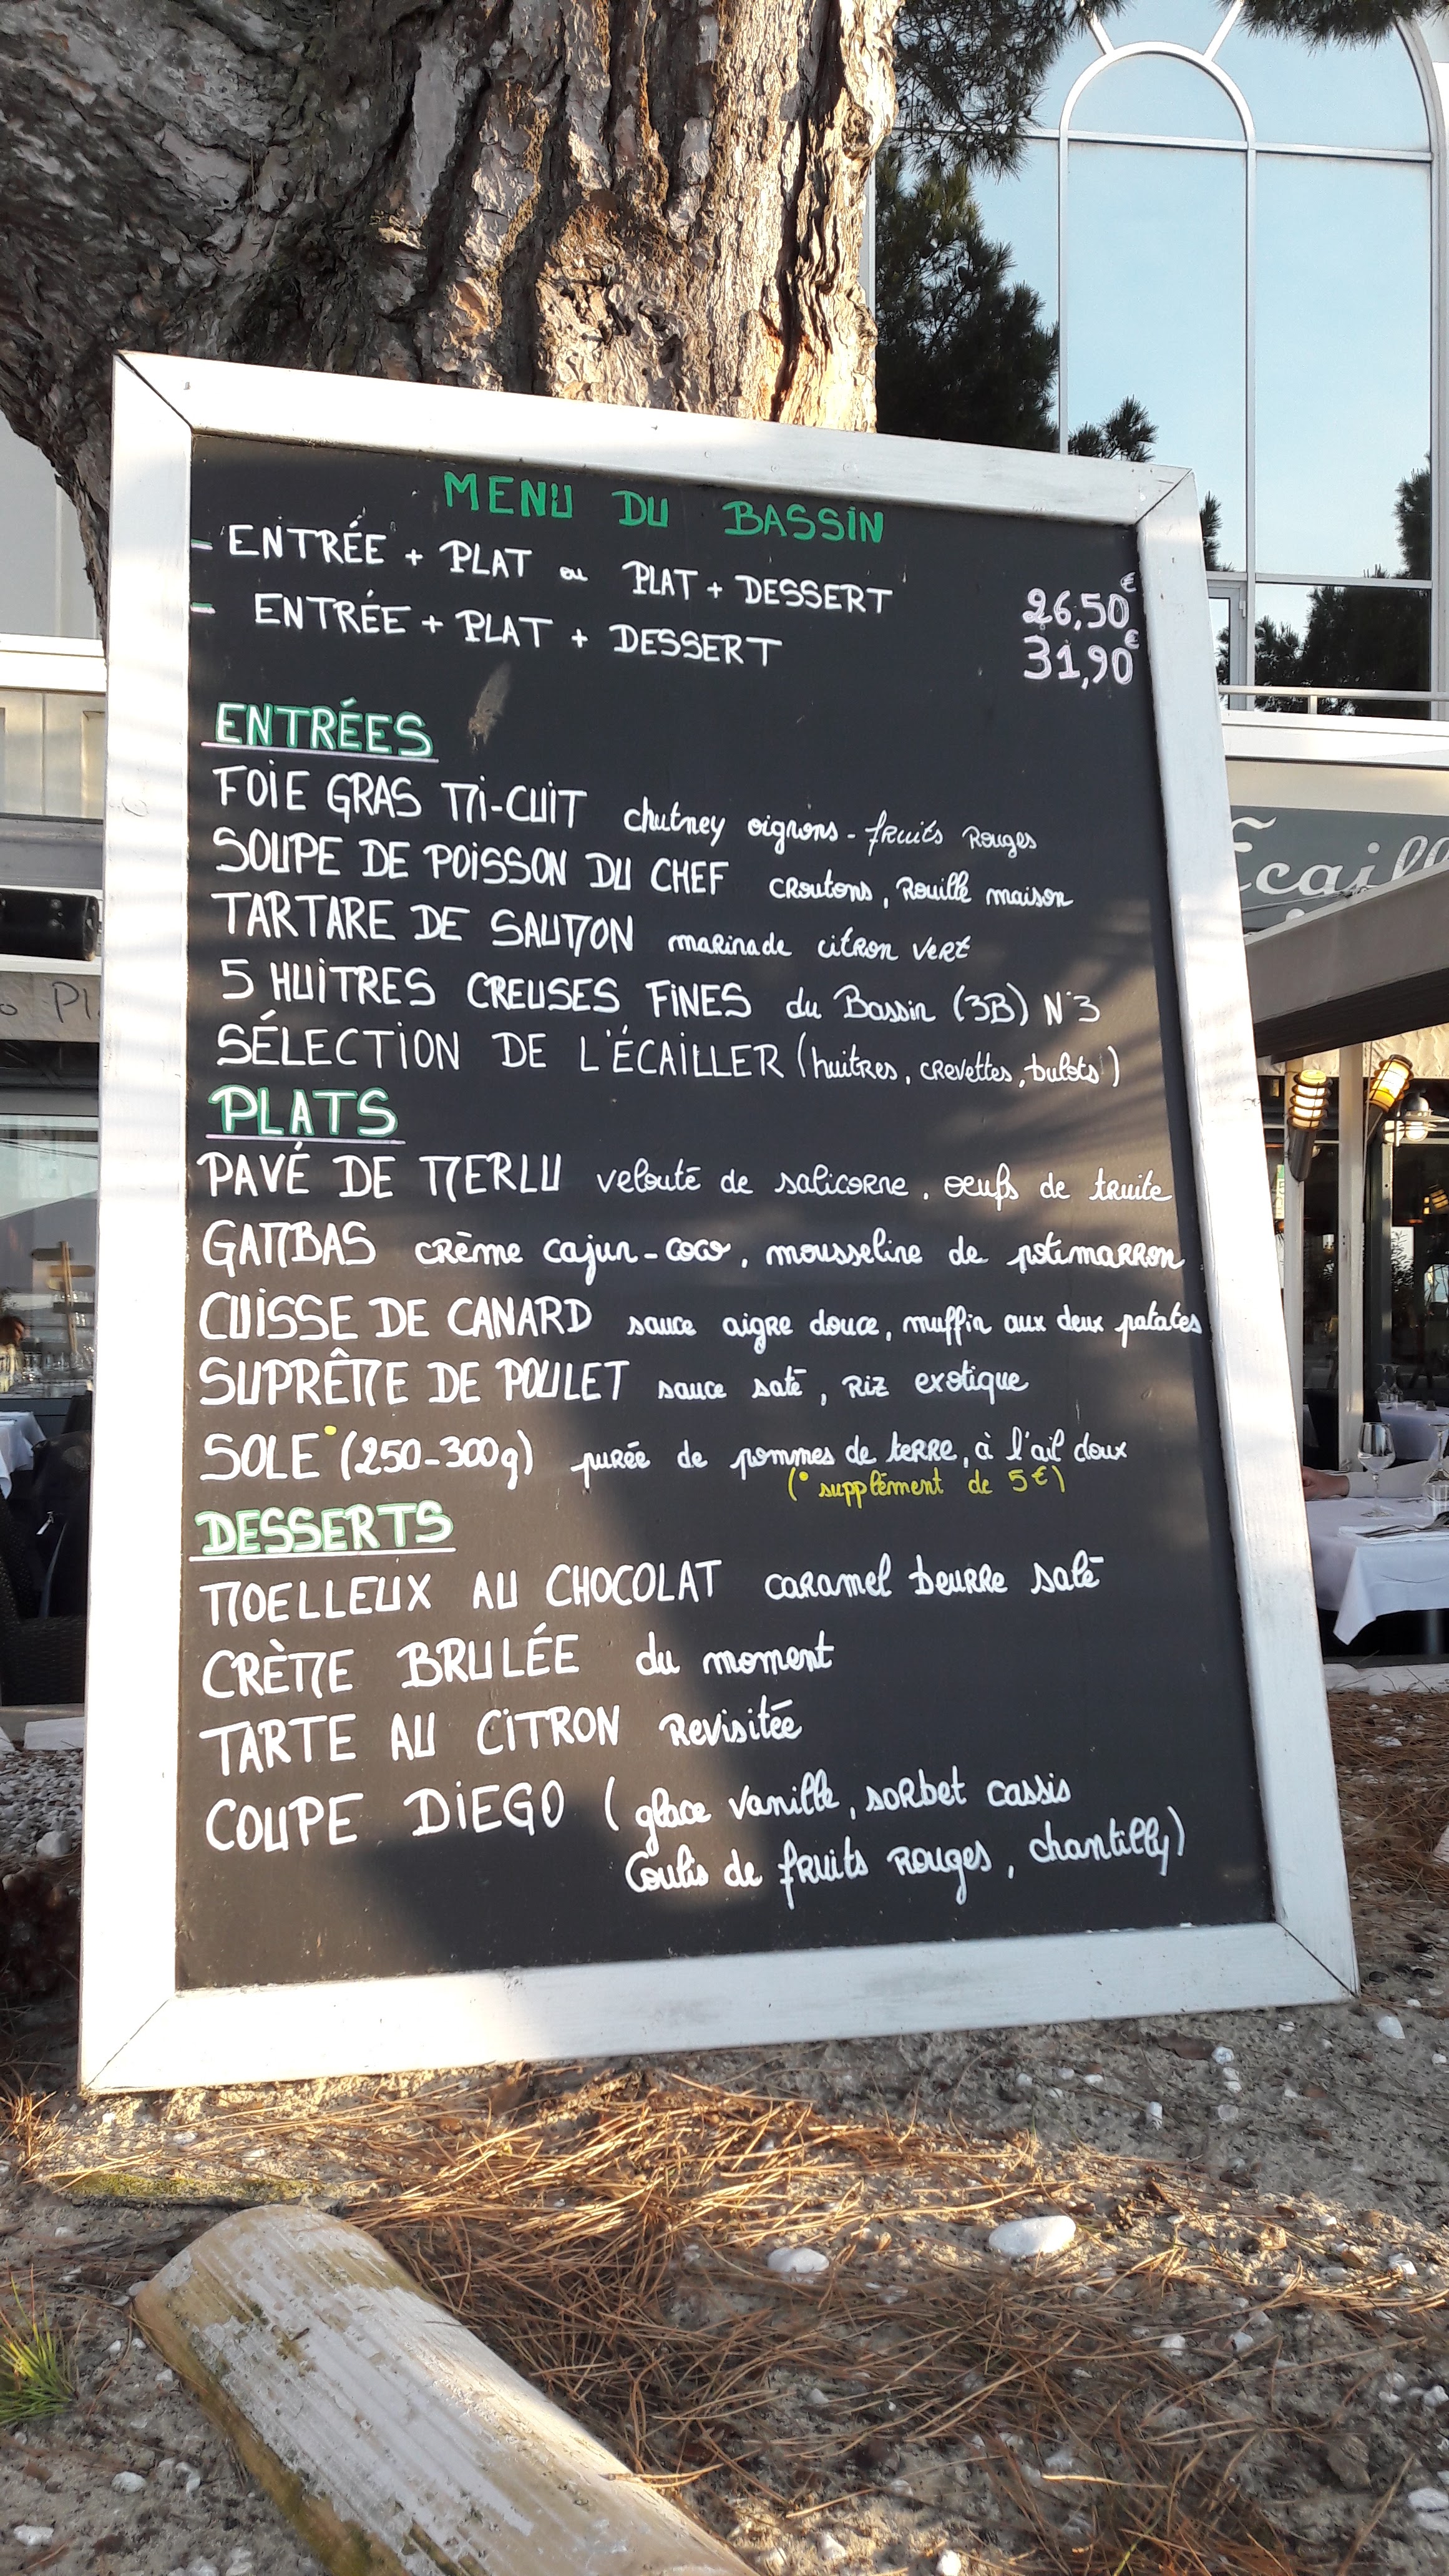 MENU DU BASSIN
- ENTRÉE + PLAT ou PLAT + DESSERT 26,50€
- ENTRÉE + PLAT + DESSERT 31,90€
ENTRÉES
FOIE GRAS MI-CUIT chutney oignons - fruits Rouges
SOUPE DE POISSON DU CHEF croutons, Rouille maison
TARTARE DE SAUMON marinade citron vert
5 HUITRES CREUSES FINES du Bassin (3B) N°3
SÉLECTION DE L'ÉCAILLER (huitres, crevettes, bulots)
PLATS
PAVÉ DE MERLU velouté de salicorne, oeufs de truite
GAMBAS crème cajun-coco, mousseline de potimarron
CUISSE DE CANARD sauce aigre douce, muffin aux deux patates
SUPRÊME DE POULET sauce saté, Riz exotique
SOLE° (250-300g) purée de pommes de terre, à l'ail doux
(° supplément de 5€)
DESSERTS
MOELLEUX AU CHOCOLAT caramel beurre salé
CRÈME BRULÉE du moment
TARTE AU CITRON Revisitée
COUPE DIEGO (glace vanille, sorbet cassis
Coulis de fruits Rouges, chantilly)
Ecaill